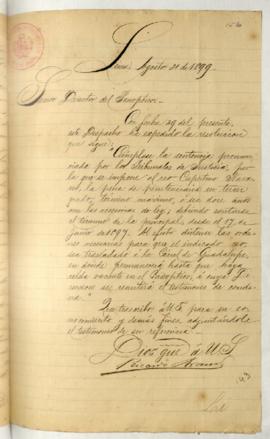 Lima, Agosto 31 de 1899
Señor Director del Panóptico.
Con fecha 29 del presente,
este Despacho ha expedido la resolución
que sigue:
"Cúmplase la sentencia pronun-
ciada por los Tribunales de Justicia, por
la que se impone al reo Capistrano
la pena de penitenciaría en tercer
grado, término máximo, ó sea doce años
con las accesorias de ley; debiendo contarse
el término de la principal, desde el 17 de
Junio de 1897. Al efecto díctense las orde-
nes necesarias para que el indicado reo
sea trasladado á la Carcel de Guadalupe,
en donde permanecerá hasta que haya
celda vacante en el Panóptico, á cuyo Di-
rector se remitirá el testimonio de conde-
na."
Que trascribo á US para su co-
nocimiento y demás fines, adjuntándole
el testimonio de su referencia.
Dios gue á US
Ricardo